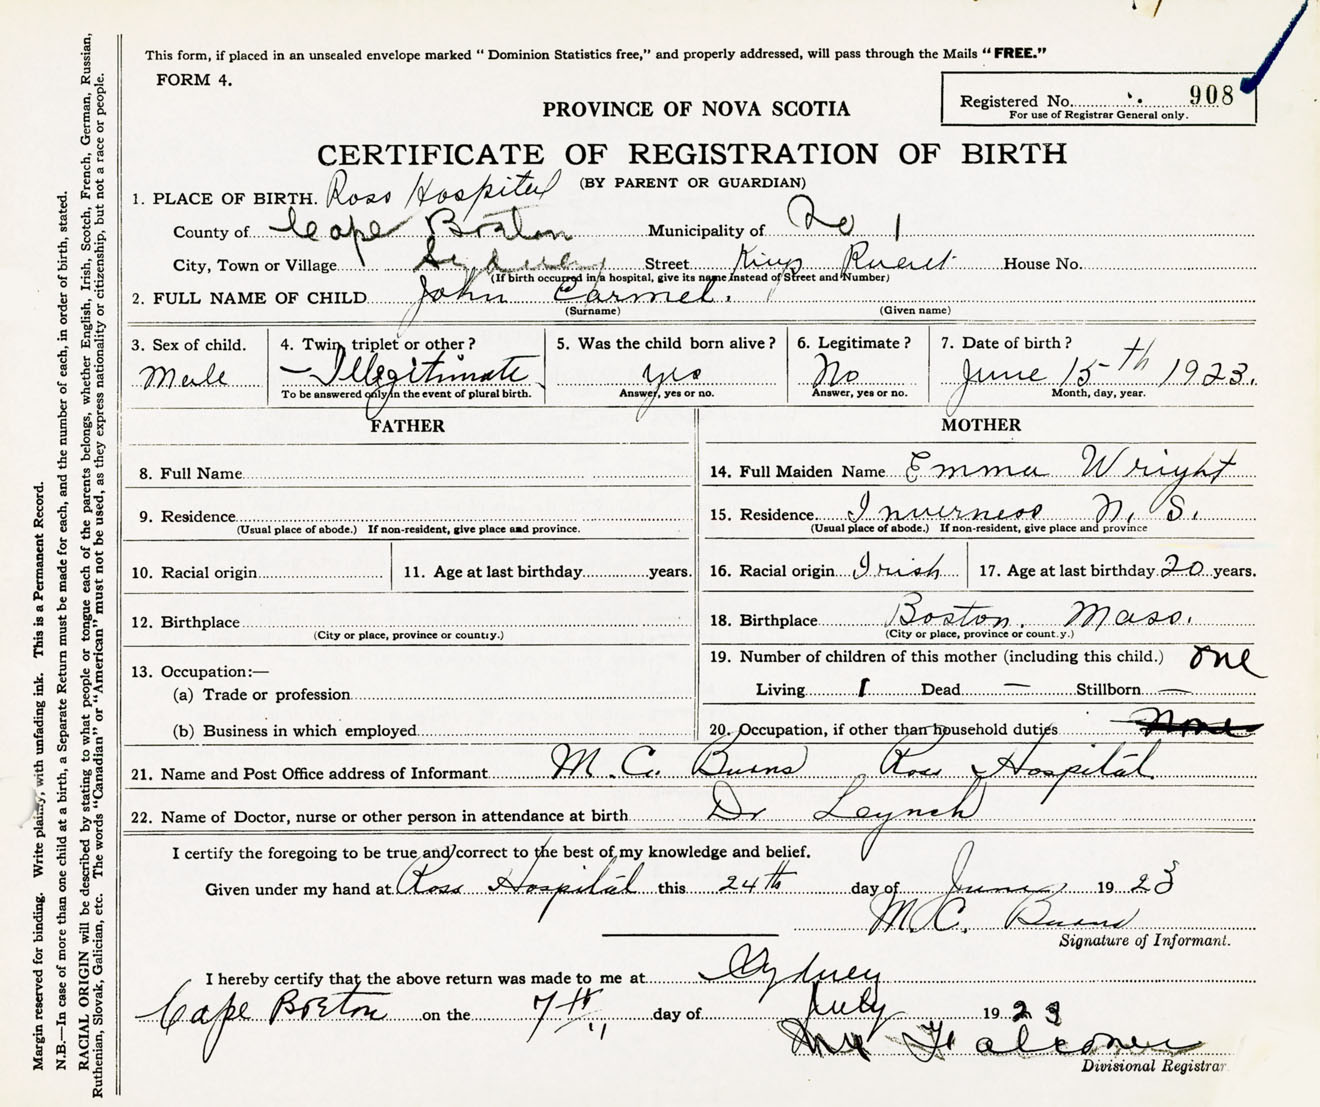 This form, if placed in an unsealed envelope marked “ Dominion Statistics free,” and properly addressed, will pass through the Mails “ FREE.”
FORM 4.
Registered No. 908
For use of Registrar General only.
PROVINCE OF NOVA SCOTIA
CERTIFICATE OF REGISTRATION OF BIRTH
(BY PARENT OR GUARDIAN)
1. PLACE OF BIRTH. Ross Hospital
County of Cape Breton Municipality of No 1
City, Town or Village Sydney Street Kings House No.
(If birth occurred in a hospital, give its name instead of Street and Number)
2. FULL NAME OF CHILD John Carmel.
(Surname) (Given name)
3. Sex of child. 4. Twin, triplet or other ? 5. Was the child born alive ? 6. Legitimate ? 7. Date of birth ?
Male — Illegitimate yes No June 15th 1923.
To be answered only in the event of plural birth. Answer, yes or no. Answer, yes or no. Month, day, year.
FATHER MOTHER
8. Full Name 14. Full Maiden Name Emma Wright
9. Residence 15. Residence Inverness N. S.
(Usual place of abode.) If non-resident, give place and province. (Usual place of abode.) If non-resident, give place and province
10. Racial origin 11. Age at last birthday years. 16. Racial origin Irish 17. Age at last birthday 20 years.
12. Birthplace 18. Birthplace Boston. Mass.
(City or place, province or country.) (City or place, province or count.y.)
13. Occupation:— 19. Number of children of this mother (including this child.) one
(a) Trade or profession Living 1 Dead — Stillborn —
(b) Business in which employed 20. Occupation, if other than household duties None
21. Name and Post Office address of Informant M. C. Burns Ross Hospital
22. Name of Doctor, nurse or other person in attendance at birth Dr Leynch
I certify the foregoing to be true and correct to the best of my knowledge and belief.
Given under my hand at Ross Hospital this 24th day of June 1923
M. C. Burns
Signature of Informant.
I hereby certify that the above return was made to me at Sydney
Cape Breton on the 7th day of July 1923
Falconer
Divisional Registrar
Margin reserved for binding. Write plainly, with unfading ink. This is a Permanent Record.
N.B.—In case of more than one child at a birth, a Separate Return must be made for each, and the number of each, in order of birth, stated.
RACIAL ORIGIN will be described by stating to what people or tongue each of the parents belongs, whether English, Irish, Scotch, French, German, Russian,
Ruthenian, Slovak, Galician, etc. The words “Canadian” or “American” must not be used, as they express nationality or citizenship, but not a race or people.